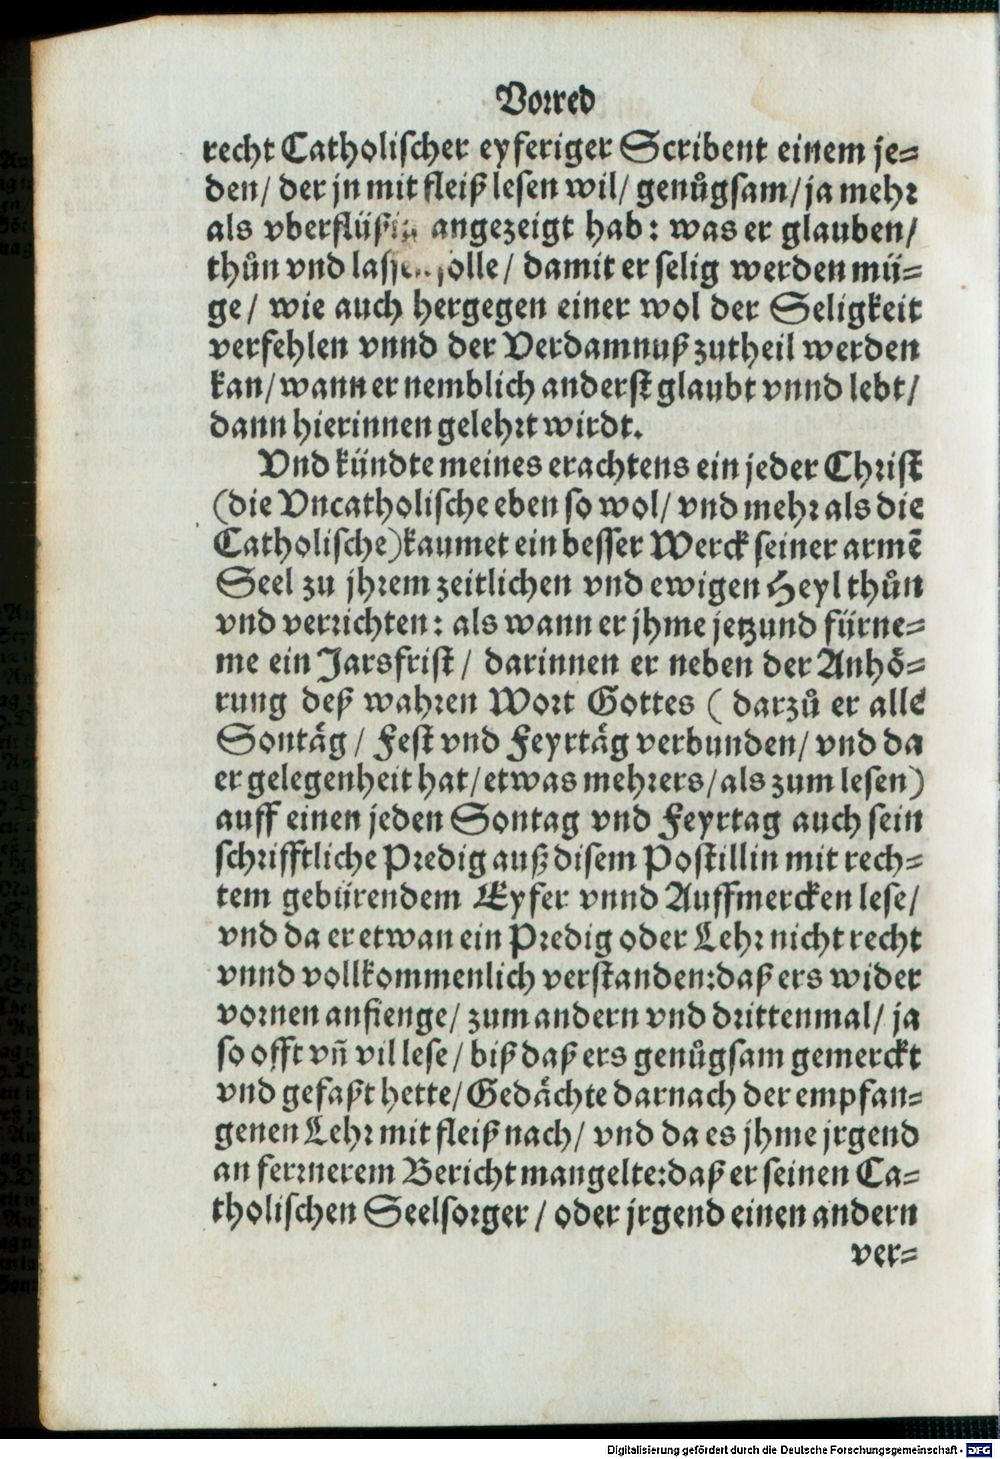 Vorred
recht Catholischer eyferiger Scribent einem je-
den/ der jn mit fleiß lesen wil/ genůgsam/ ja mehr
als vberflüßig angezeigt hab: was er glauben/
thůn vnd lassen solle/ damit er selig werden mü-
ge/ wie auch hergegen einer wol der Seligkeit
verfehlen vnnd der Verdamnuß zutheil werden
kan/ wann er nemblich anderst glaubt vnnd lebt/
dann hierinnen gelehrt wirdt.
Vnd kündte meines erachtens ein jeder Christ
(die Vncatholische eben so wol/ vnd mehr als die
Catholische) kaumet ein besser Werck seiner armē
Seel zu jhrem zeitlichen vnd ewigen Heyl thůn
vnd verrichten: als wann er jhme jetzund fürne-
me ein Jarsfrist/ darinnen er neben der Anhö-
rung deß wahren Wort Gottes ( darzů er alle
Sontäg/ Fest vnd Feyrtäg verbunden/ vnd da
er gelegenheit hat/ etwas mehrers/ als zum lesen)
auff einen jeden Sontag vnd Feyrtag auch sein
schrifftliche Predig auß disem Postillin mit rech-
tem gebürendem Eyfer vnnd Auffmercken lese/
vnd da er etwan ein Predig oder Lehr nicht recht
vnnd vollkommenlich verstanden: daß ers wider
vornen anfienge/ zum andern vnd drittenmal/ ja
so offt vn̄ vil lese/ biß daß ers genůgsam gemerckt
vnd gefaßt hette/ Gedächte darnach der empfan-
genen Lehr mit fleiß nach/ vnd da es jhme jrgend
an ferrnerem Bericht mangelte: daß er seinen Ca-
tholischen Seelsorger/ oder jrgend einen andern
ver-
Digitalisierung gefördert durch die Deutsche Forschungsgemeinschaft - DFG